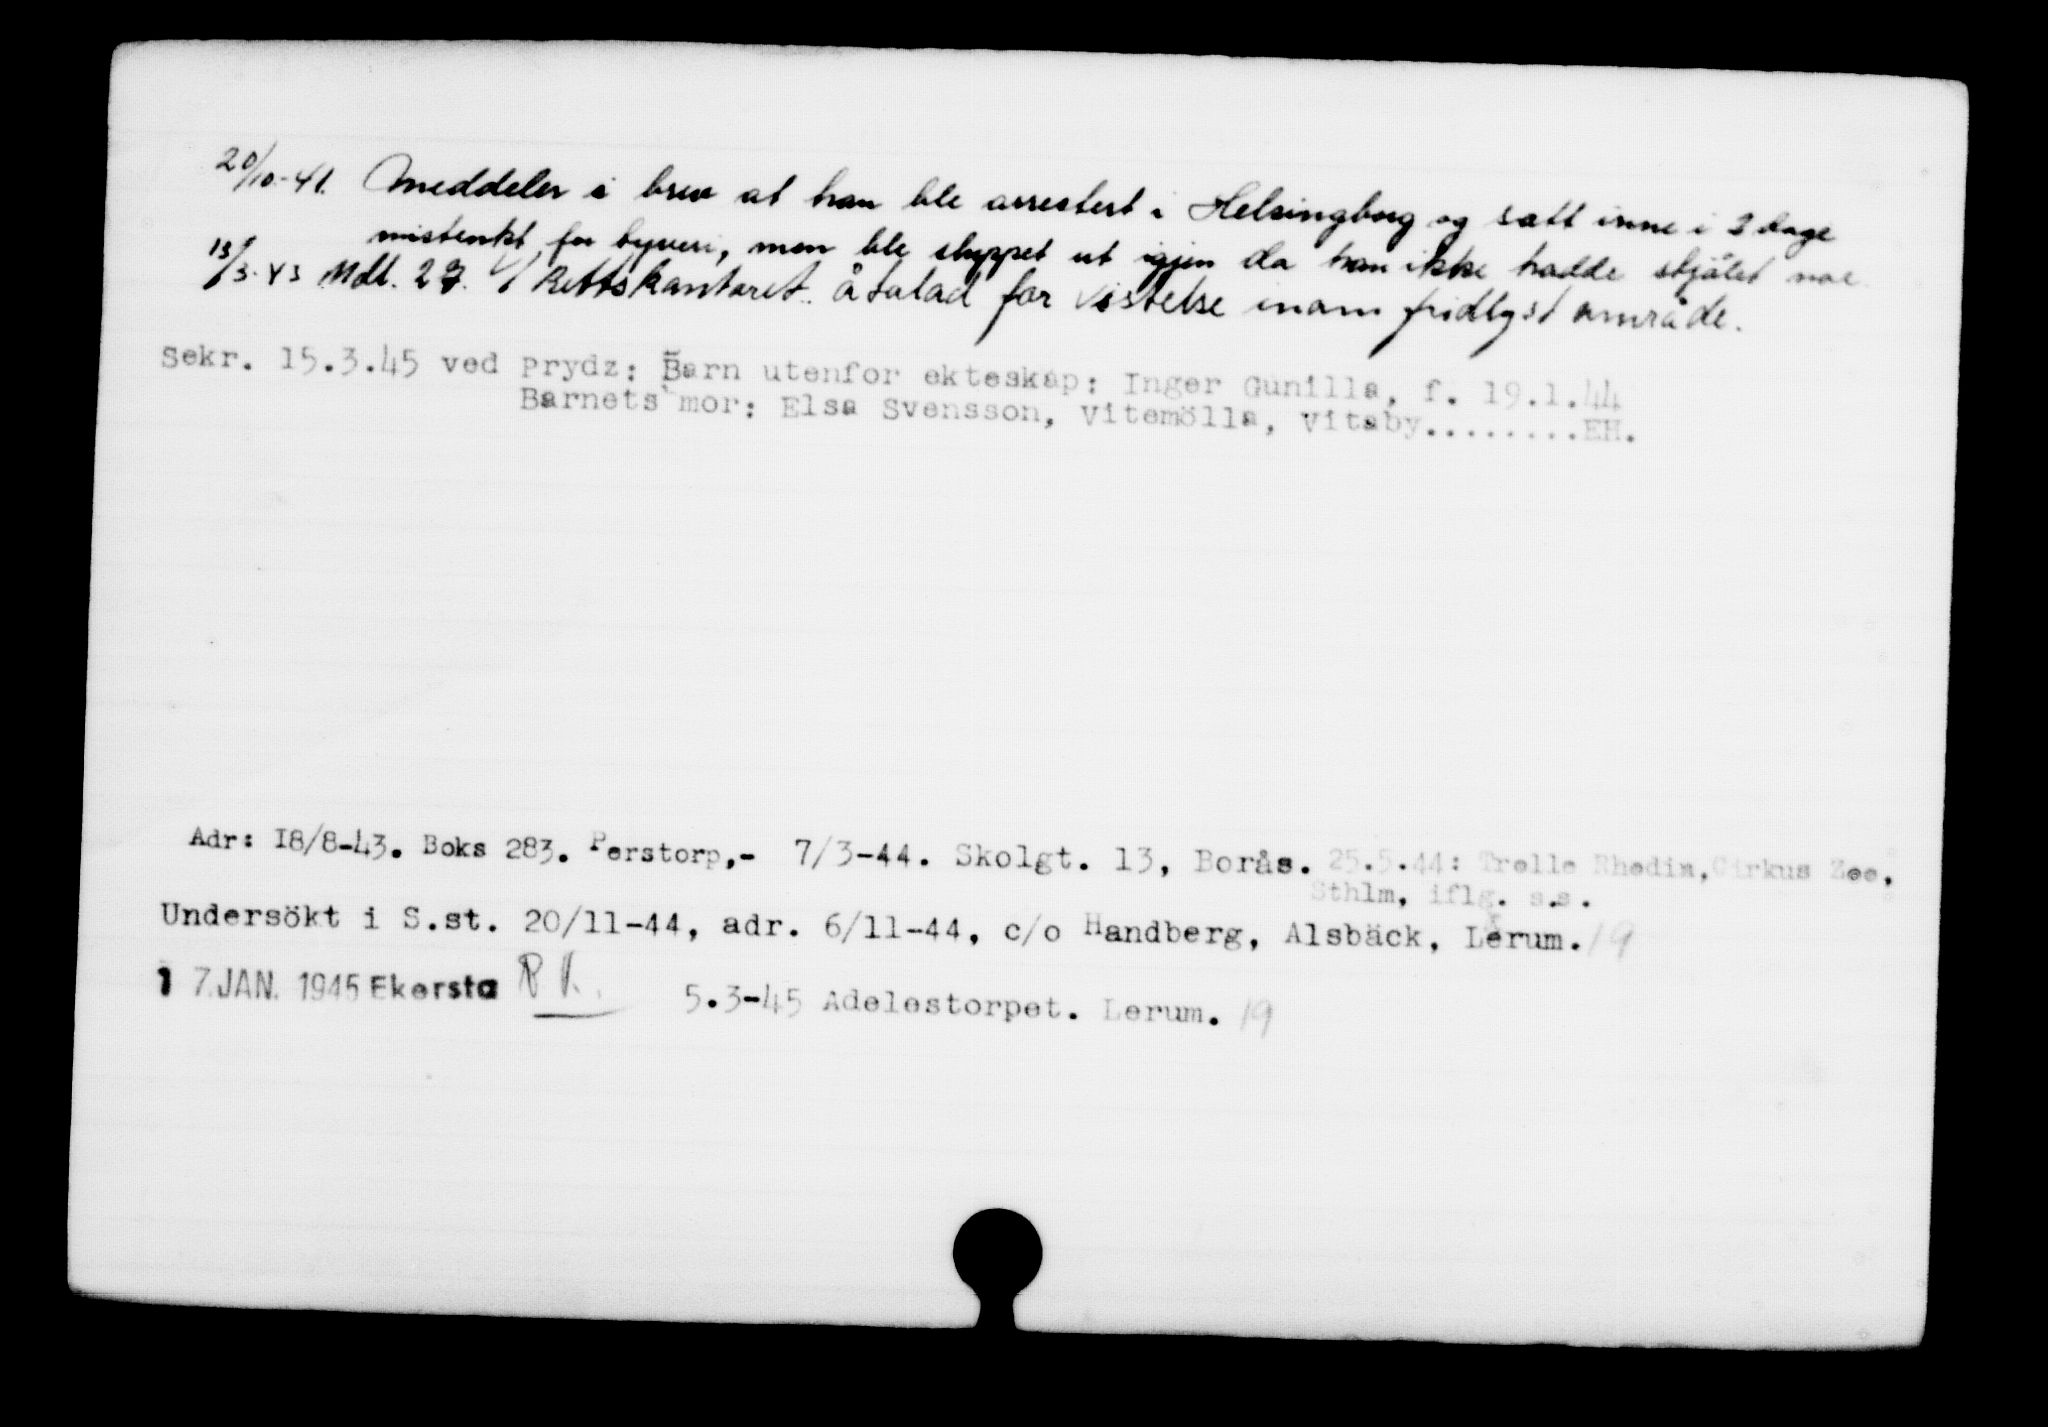 20/10-41. Meddeler i brev at han ble arrestert i Helsingborg og satt inne i 3 dage
mistenkt for tyveri, men ble sluppet ut igjen da han ikke hadde stjålet noe.
13/3-43 Mdt. 27. Rettskontoret. åtalad for vistelse inom fridlyst område.
Sekr. 15.3.45 ved Prydz: Barn utenfor ekteskap: Inger Gunilla, f. 19.1.44
Barnets mor: Elsa Svensson, Vitemölla, Vitaby........EH.
Adr: I8/8-43. Boks 283. Perstorp,- 7/3-44. Skolgt. 13, Borås. 25.5.44: Trolle Rhodin, Cirkus Zoo,
Sthlm, iflg. s.s.
Undersökt i S.st. 20/11-44, adr. 6/11-44, c/o Handberg, Alsbäck, Lerum. 19
17. JAN. 1945 Ekersta RK. 5.3-45 Adelestorpet. Lerum. 19